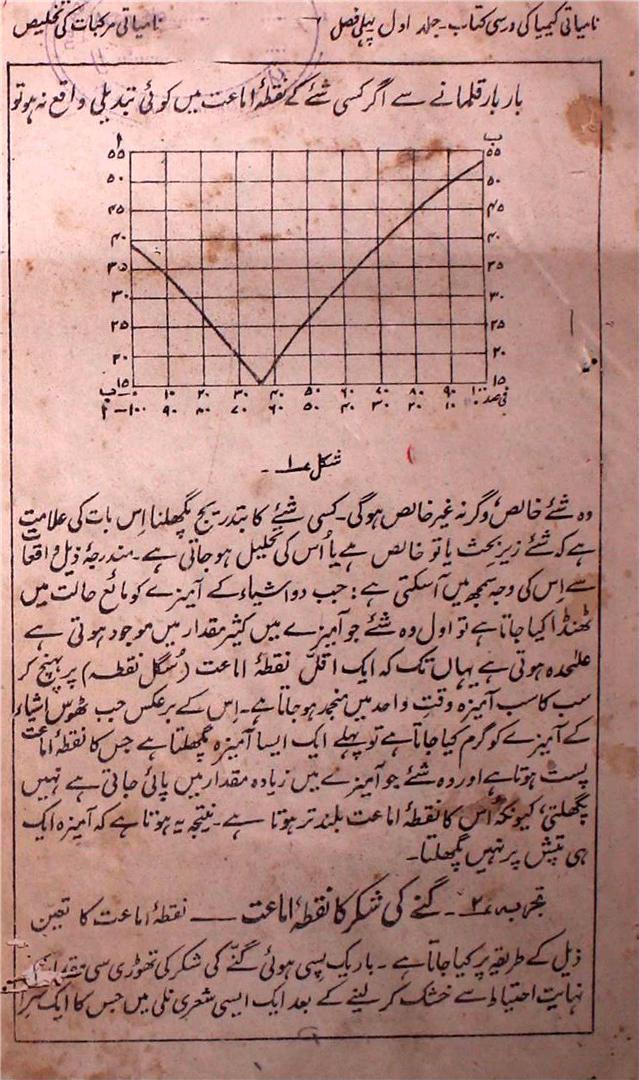 نامیاتی کیمیا کی درسی کتاب۔جلد اول پہلی فصل
نامیاتی مرکبات کی تخلیص
بار بار قلمانے سے اگر کسی شئے کے نقطۂ اماعت میں کوئی تبدیلی واقع نہ ہو تو
ا ب
۵۵ ۵۵
۵۰ ۵۰
۴۵ ۴۵
۴۰ ۴۰
۳۵ ۳۵
۳۰ ۳۰
۲۵ ۲۵
۲۰ ۲۰
۱۵ ۱۵
ب—۰ ۱۰ ۲۰ ۳۰ ۴۰ ۵۰ ۶۰ ۷۰ ۸۰ ۹۰ ۱۰۰
ا—۱۰۰ ۹۰ ۸۰ ۷۰ ۶۰ ۵۰ ۴۰ ۳۰ ۲۰ ۱۰ ۰ فی صد
شکل ۱۔
وہ شئے خالص وگرنہ غیر خالص ہوگی۔کسی شئے کا بتدریج پگھلنا اِس بات کی علامت
ہے کہ شئے زیر بحث یا تو خالص ہے یا اُس کی تحلیل ہو جاتی ہے۔مندرجۂ ذیل واقعات
سے اِس کی وجہ سمجھ میں آسکتی ہے: جب دو اشیاء کے آمیزے کو مائع حالت میں
ٹھنڈا کیا جاتا ہے تو اول وہ شئے جو آمیزے میں کثیر مقدار میں موجود ہوتی ہے
علٰحدہ ہوتی ہے یہاں تک کہ ایک اقل نقطۂ اماعت (سُگل نقطہ) پر پہنچ کر
سب کا سب آمیزہ وقتِ واحد میں منجمد ہو جاتا ہے۔اِس کے برعکس جب ٹھوس اشیاء
کے آمیزے کو گرم کیا جاتا ہے تو پہلے ایک ایسا آمیزہ پگھلتا ہے جس کا نقطۂ اماعت
پست ہوتا ہے اور وہ شئے جو آمیزے میں زیادہ مقدار میں پائی جاتی ہے نہیں
پگھلتی، کیونکہ اُس کا نقطۂ اماعت بلند تر ہوتا ہے۔نتیجہ یہ ہوتا ہے کہ آمیزہ ایک
ہی تپش پر نہیں پگھلتا۔
تجربہ ۲۔ گنّے کی شکر کا نقطۂ اماعت — نقطۂ اماعت کا تعین
ذیل کے طریقہ پر کیا جاتا ہے۔باریک پسی ہوئی گنّے کی شکر کی تھوڑی سی مقدار
نہایت احتیاط سے خشک کر لینے کے بعد ایک ایسی شعری نلی میں جس کا ایک سرا